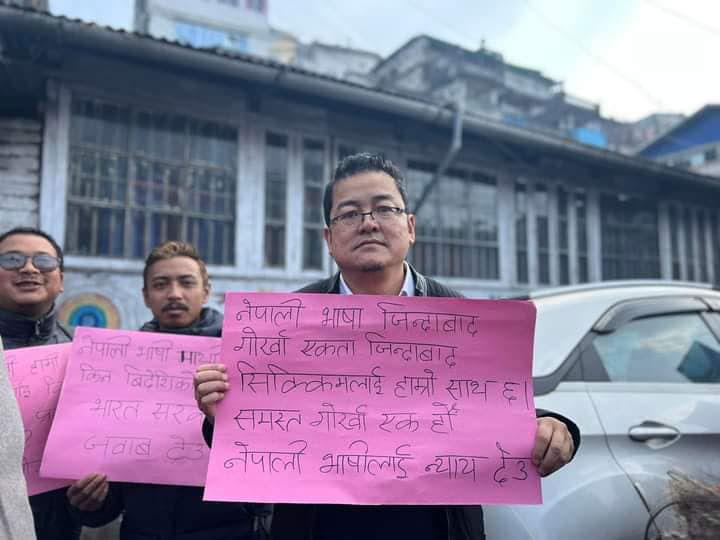 नेपाली भाषा जिन्दाबाद
गोर्खा एकता जिन्दाबाद
सिक्किमलाई हाम्रो साथ छ।
समस्त गोर्खा एक हौँ
नेपाली भाषीलाई न्याय देउ
नेपाली भाषी माथि
किन बिदेशिको
भारत सरका
जवाब देउ
हामी